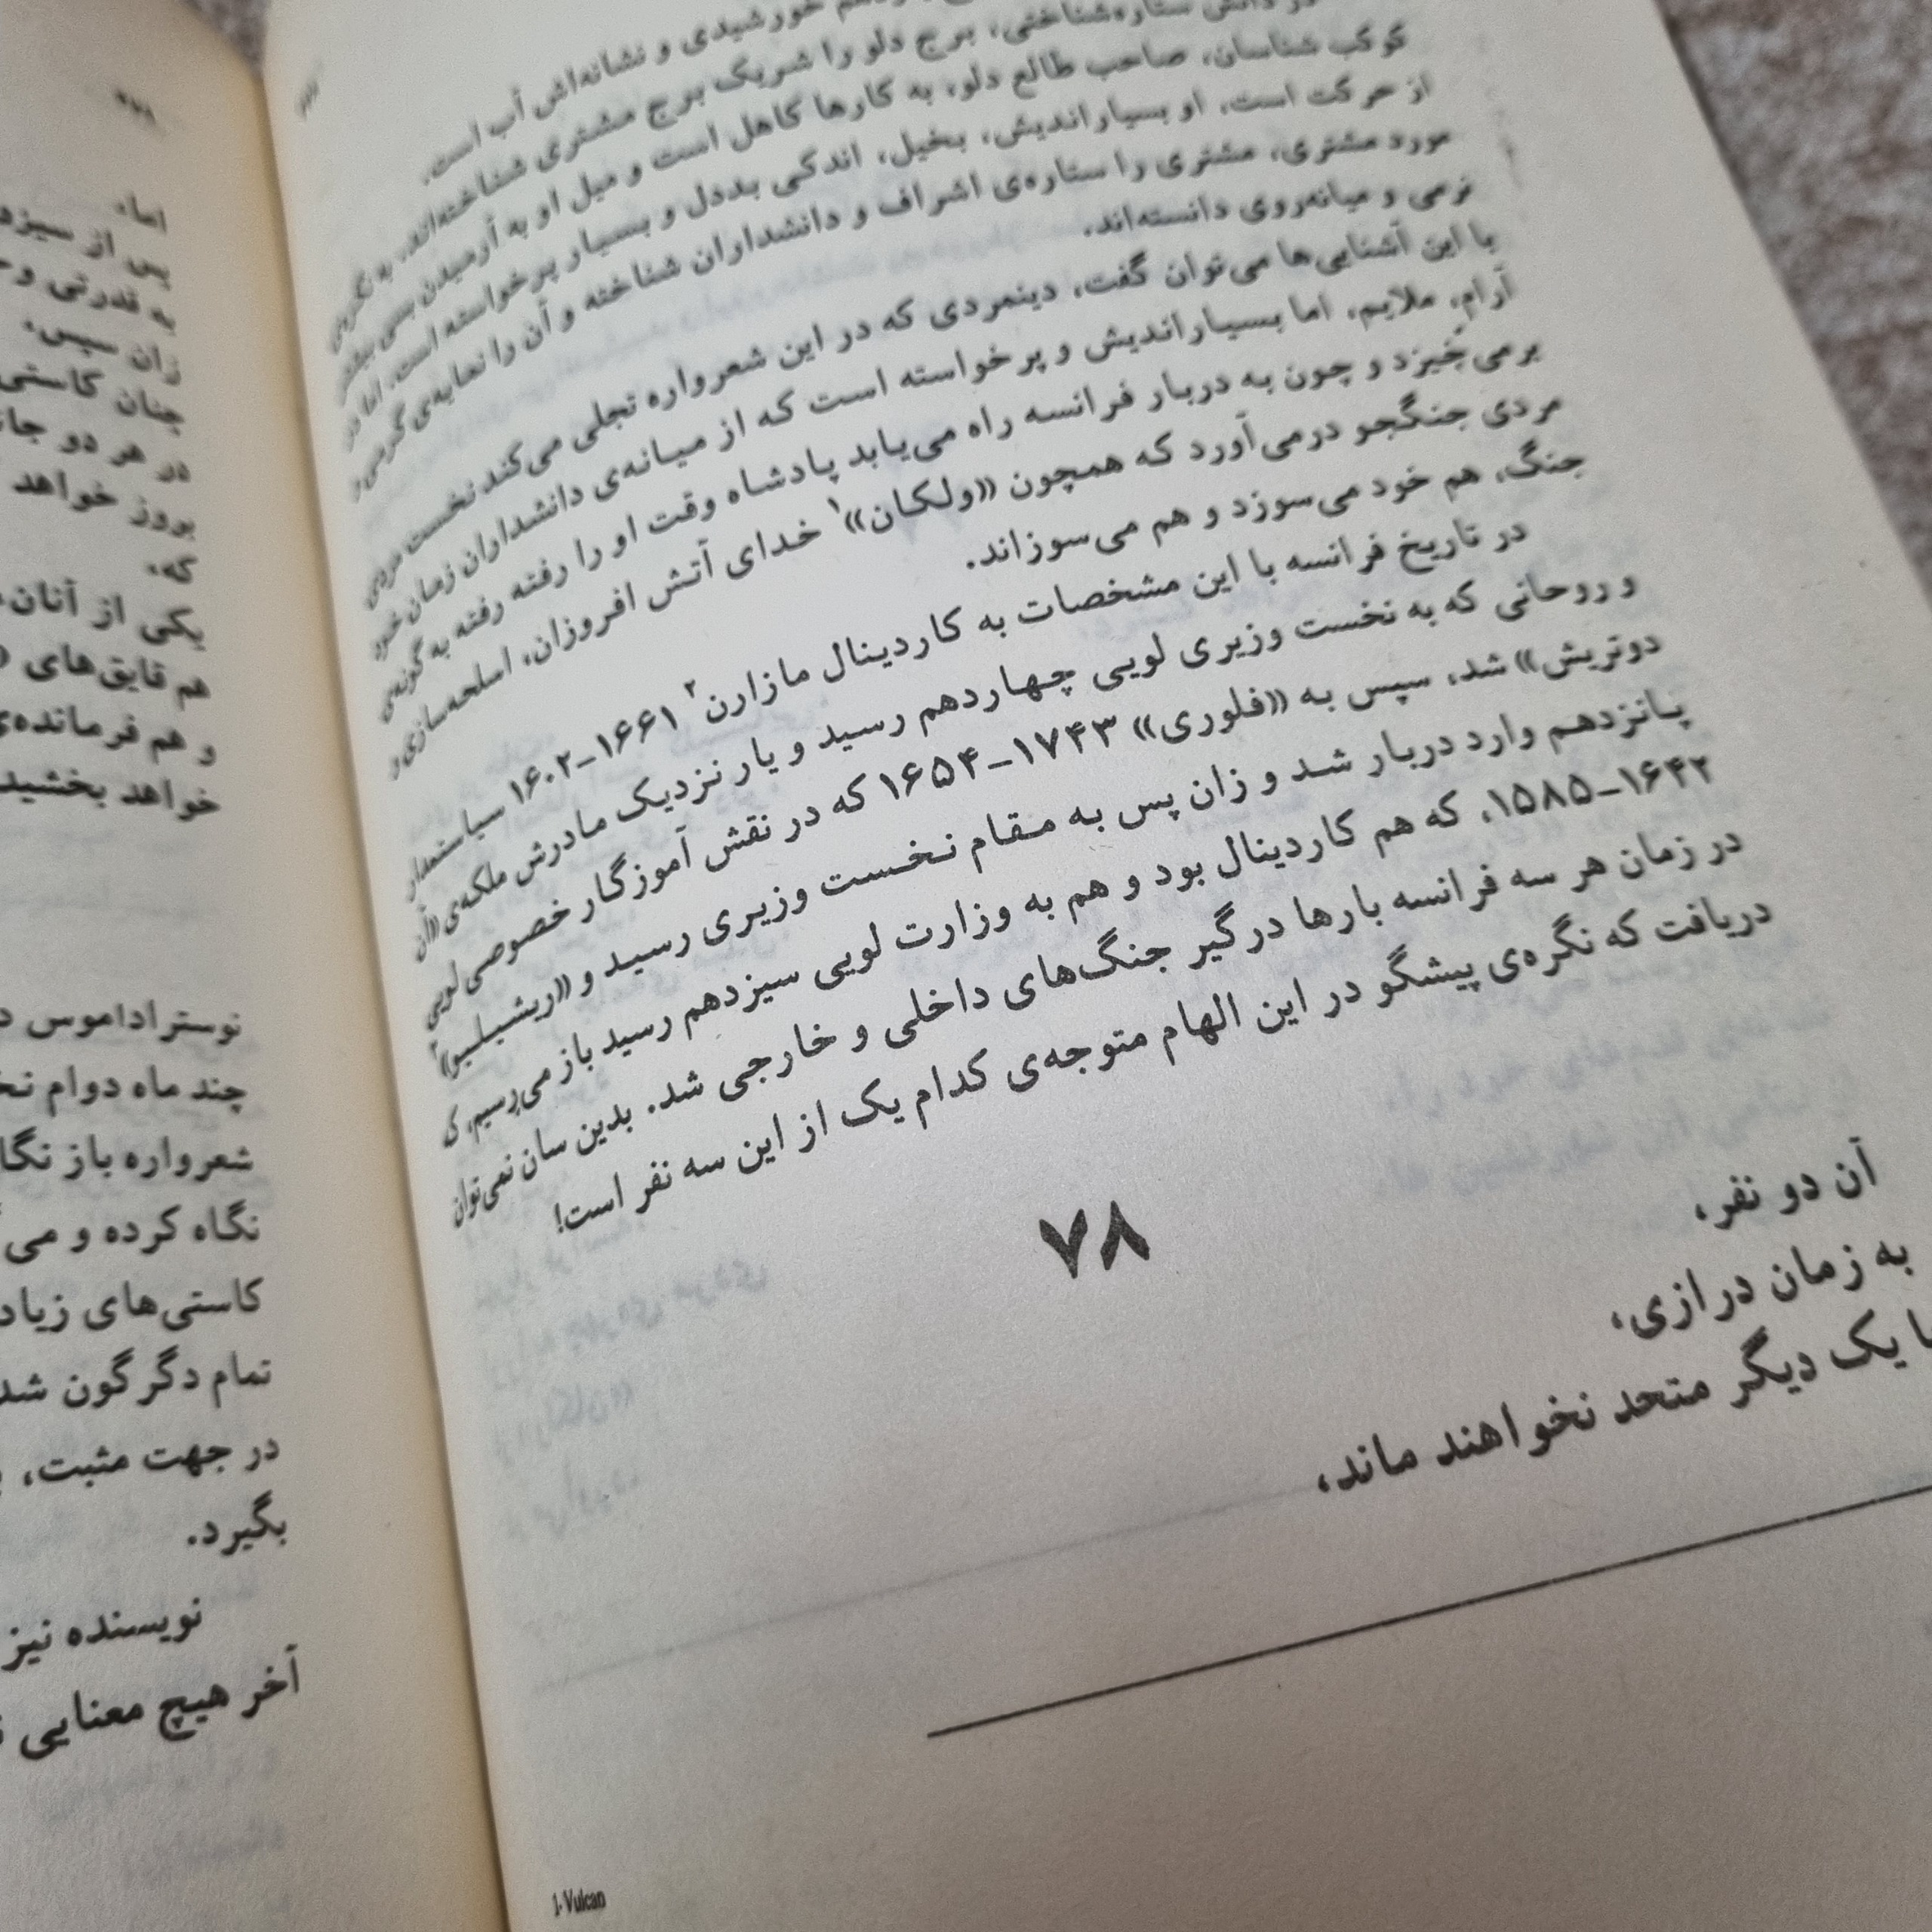 خورشیدی و نشانه‌اش آب است.
در دانش ستاره‌شناختی، برج دلو را شریک برج مشتری شناخته‌اند. به نگره‌ی
کوکب شناسان، صاحب طالع دلو، به کارها کاهل است و میل او به آرمیدن بسی بیشتر
از حرکت است. او بسیاراندیش، بخیل، اندکی بددل و بسیار پرخواسته است. اما در
مورد مشتری، مشتری را ستاره‌ی اشراف و دانشداران شناخته و آن را نمایه‌ی گرمی و
نرمی و میانه‌روی دانسته‌اند.
با این آشنایی‌ها می‌توان گفت، دینمردی که در این شعرواره تجلی می‌کند نخست مردی
آرام، ملایم، اما بسیاراندیش و پرخواسته است که از میانه‌ی دانشداران زمان خود
برمی‌خیزد و چون به دربار فرانسه راه می‌یابد پادشاه وقت او را رفته رفته به گونه‌ی
مردی جنگجو درمی‌آورد که همچون «ولکان»۱ خدای آتش افروزان، اسلحه‌سازی و
جنگ، هم خود می‌سوزد و هم می‌سوزاند.
در تاریخ فرانسه با این مشخصات به کاردینال مازارن۲ ۱۶۶۱-۱۶۰۲ سیاستمدار
و روحانی که به نخست وزیری لویی چهاردهم رسید و یار نزدیک مادرش ملکه‌ی «آن
دوتریش» شد، سپس به «فلوری» ۱۷۴۳-۱۶۵۴ که در نقش آموزگار خصوصی لویی
پانزدهم وارد دربار شد و زان پس به مقام نخست وزیری رسید و «ریشیلیو»۳
۱۶۴۲-۱۵۸۵، که هم کاردینال بود و هم به وزارت لویی سیزدهم رسید باز می‌رسیم، کی
در زمان هر سه فرانسه بارها درگیر جنگ‌های داخلی و خارجی شد. بدین سان نمی‌توان
دریافت که نگره‌ی پیشگو در این الهام متوجه‌ی کدام یک از این سه نفر است!
۷۸
آن دو نفر،
به زمان درازی،
یک دیگر متحد نخواهند ماند،
1- Vulcan
اما،
پس از
به قدرتی و
زان سپس،
چنان کاستی
در هر دو
بروز خواهد
که،
یکی از آنان،
هم قایق‌های
و هم فرمانده‌ی
خواهد بخشید
نوستراداموس
چند ماه دوام
شعرواره باز
نگاه کرده و می
کاستی‌های زیاد
تمام دگرگون
در جهت مثبت،
بگیرد.
نویسنده نیز
آخر هیچ معنایی